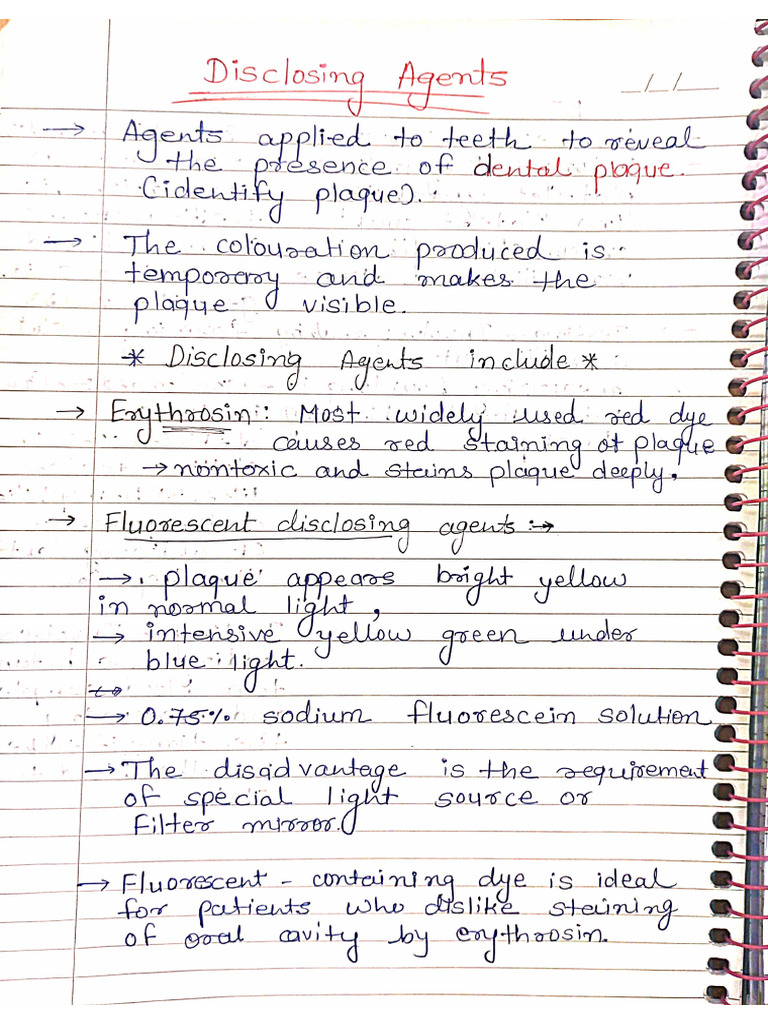 Disclosing Agents
_/_/_
→ Agents applied to teeth to reveal
the presence of dental plaque.
(identify plaque).
→ The colouration produced is
temporary and makes the
plaque visible.
* Disclosing Agents include *
→ Erythrosin: Most widely used red dye
causes red staining of plaque
→ nontoxic and stains plaque deeply.
→ Fluorescent disclosing agents :→
→ plaque appears bright yellow
in normal light,
→ intensive yellow green under
blue light.
→ 0.75% sodium fluorescein solution
→ The disadvantage is the requirement
of special light source or
filter mirror.
→ Fluorescent - containing dye is ideal
for patients who dislike staining
of oral cavity by erythrosin.